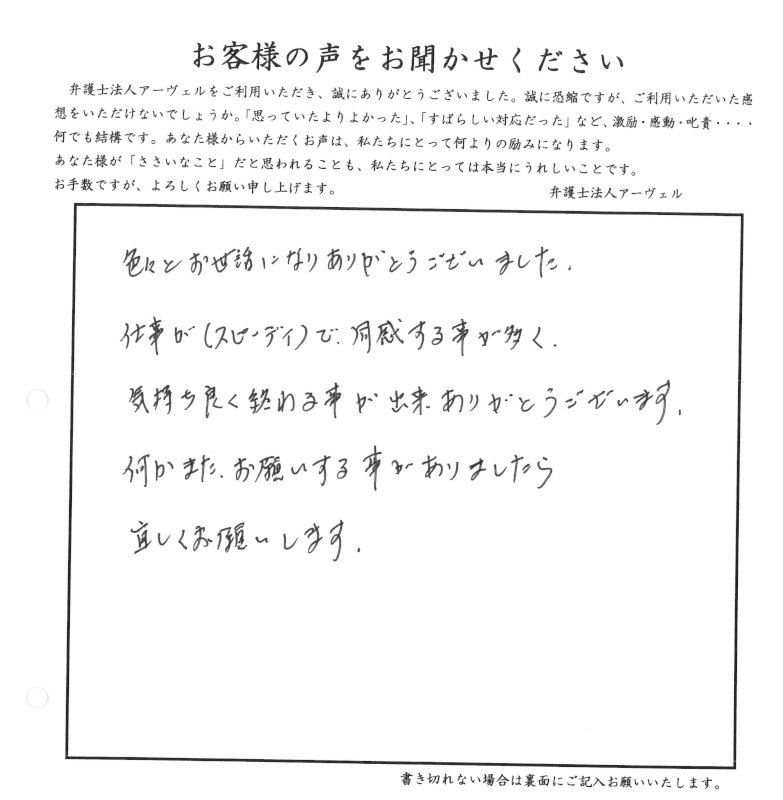 お客様の声をお聞かせください
弁護士法人アーヴェルをご利用いただき、誠にありがとうございました。誠に恐縮ですが、ご利用いただいた感
想をいただけないでしょうか。「思っていたよりよかった」、「すばらしい対応だった」など、激励・感動・叱責・・・・
何でも結構です。あなた様からいただくお声は、私たちにとって何よりの励みになります。
あなた様が「ささいなこと」だと思われることも、私たちにとっては本当にうれしいことです。
お手数ですが、よろしくお願い申し上げます。
弁護士法人アーヴェル
色々とお世話になりありがとうございました.
仕事が(スピーディ)で、同感する事が多く.
気持ち良く終わる事が出来ありがとうございます.
何かまた、お願いする事がありましたら
宜しくお願いします.
書き切れない場合は裏面にご記入お願いいたします。